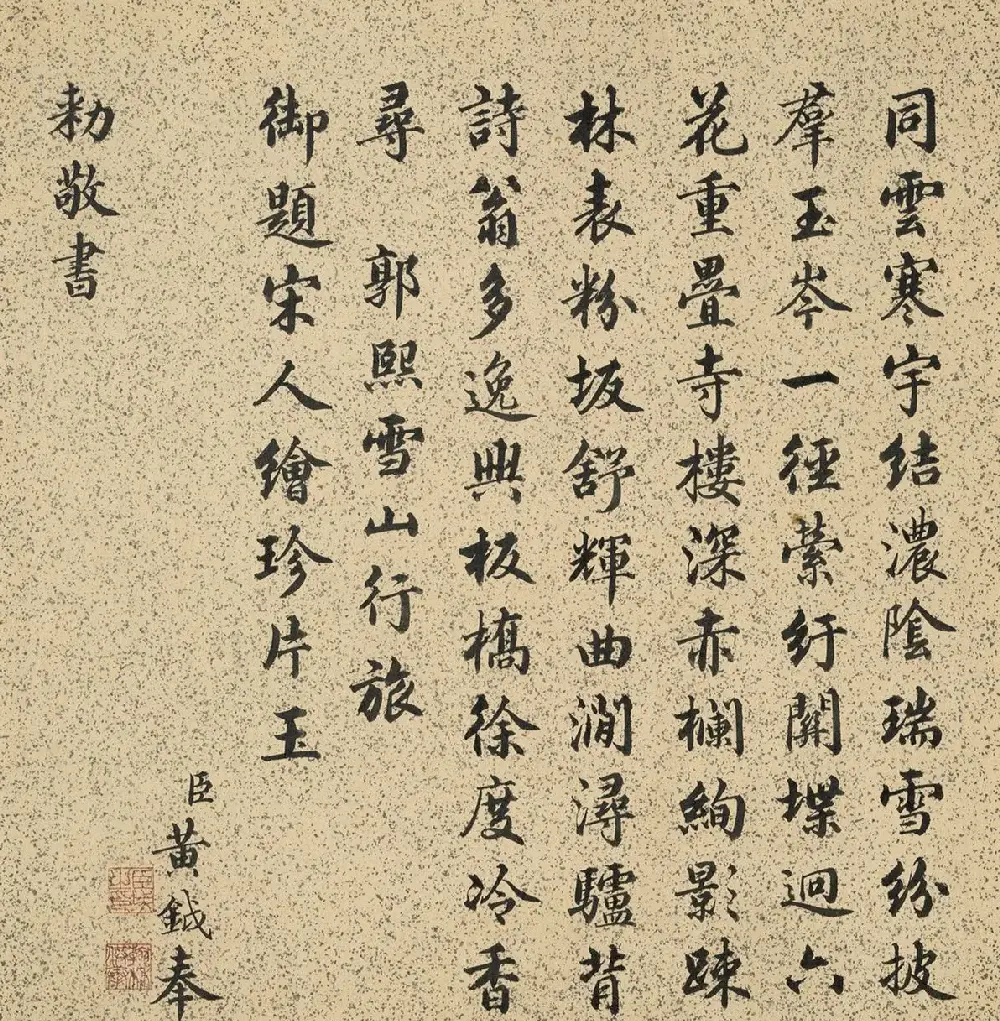 同雲寒宇結濃陰瑞雪紛披
羣玉岑一徑縈紆關堞迥六
花重疊寺樓深赤欄絢影踈
林表粉坂舒輝曲澗潯驢背
詩翁多逸興板橋徐度冷香
尋　郭熙雪山行旅
御題宋人繪珍片玉
臣黃鉞奉
勑敬書